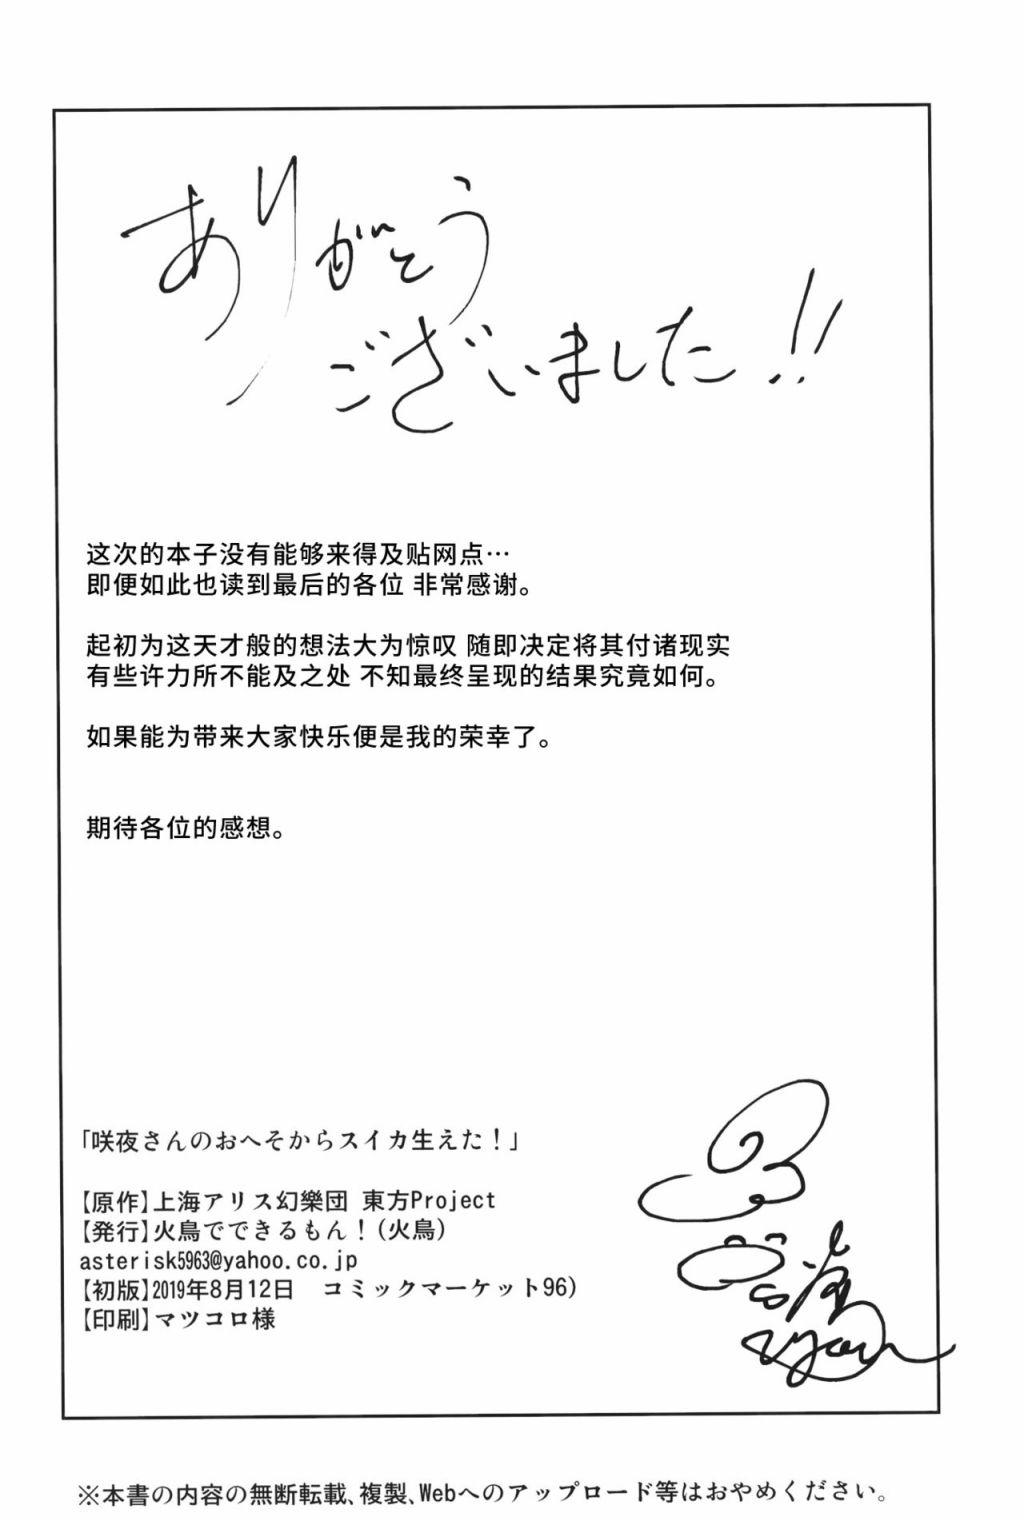 ありがとう
ございました!!
这次的本子没有能够来得及贴网点…
即便如此也读到最后的各位 非常感谢。
起初为这天才般的想法大为惊叹 随即决定将其付诸现实
有些许力所不能及之处 不知最终呈现的结果究竟如何。
如果能为带来大家快乐便是我的荣幸了。
期待各位的感想。
「咲夜さんのおへそからスイカ生えた！」
【原作】上海アリス幻樂団 東方Project
【発行】火鳥でできるもん！(火鳥)
asterisk5963@yahoo.co.jp
【初版】2019年8月12日　コミックマーケット96)
【印刷】マツコロ様
※本書の内容の無断転載、複製、Webへのアップロード等はおやめください。